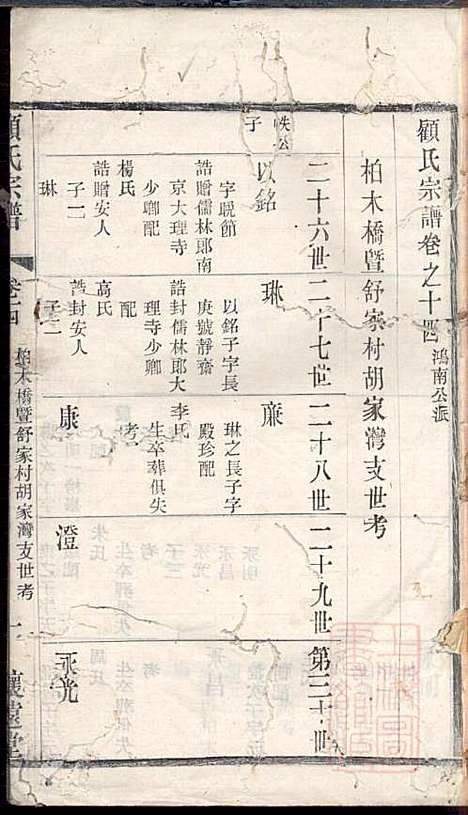 顧氏宗譜卷之十四
鴻南公派
柏木橋暨舒家村胡家灣支世考
二十六世
二十七世
二十八世
二十九世
第三十世
公
子
以銘
字
節
誥贈儒林郎南
京大理寺
少卿配
楊氏
誥贈安人
子一
琳
琳
以銘子字長
庚號靜齋
誥封儒林郎大
理寺少卿
配
高氏
誥封安人
子二
廉
琳之長子字
殿珍配
李氏
生卒葬俱失
考
康
澄
永光
顧氏宗譜
卷十四
柏木橋暨舒家村胡家灣支世考
一